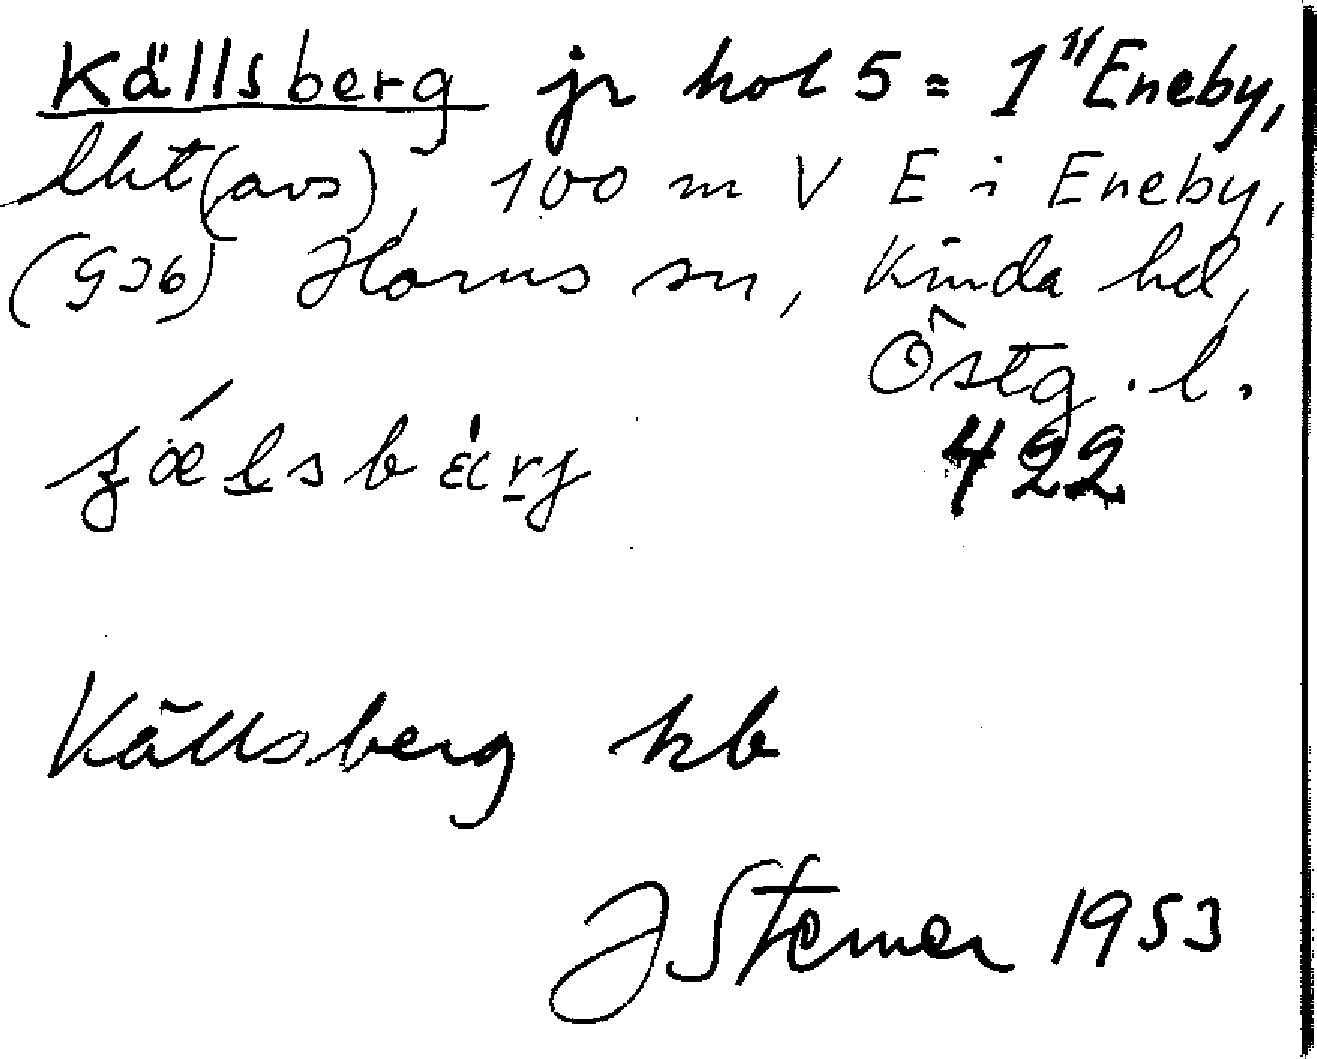 Källsberg jr hol 5 = 1" Eneby,
lht (avs), 100 m V E i Eneby,
(G36) Horns sn, Kinda hd,
Östg. l.
422
Källsberg kb
J Sterner 1953